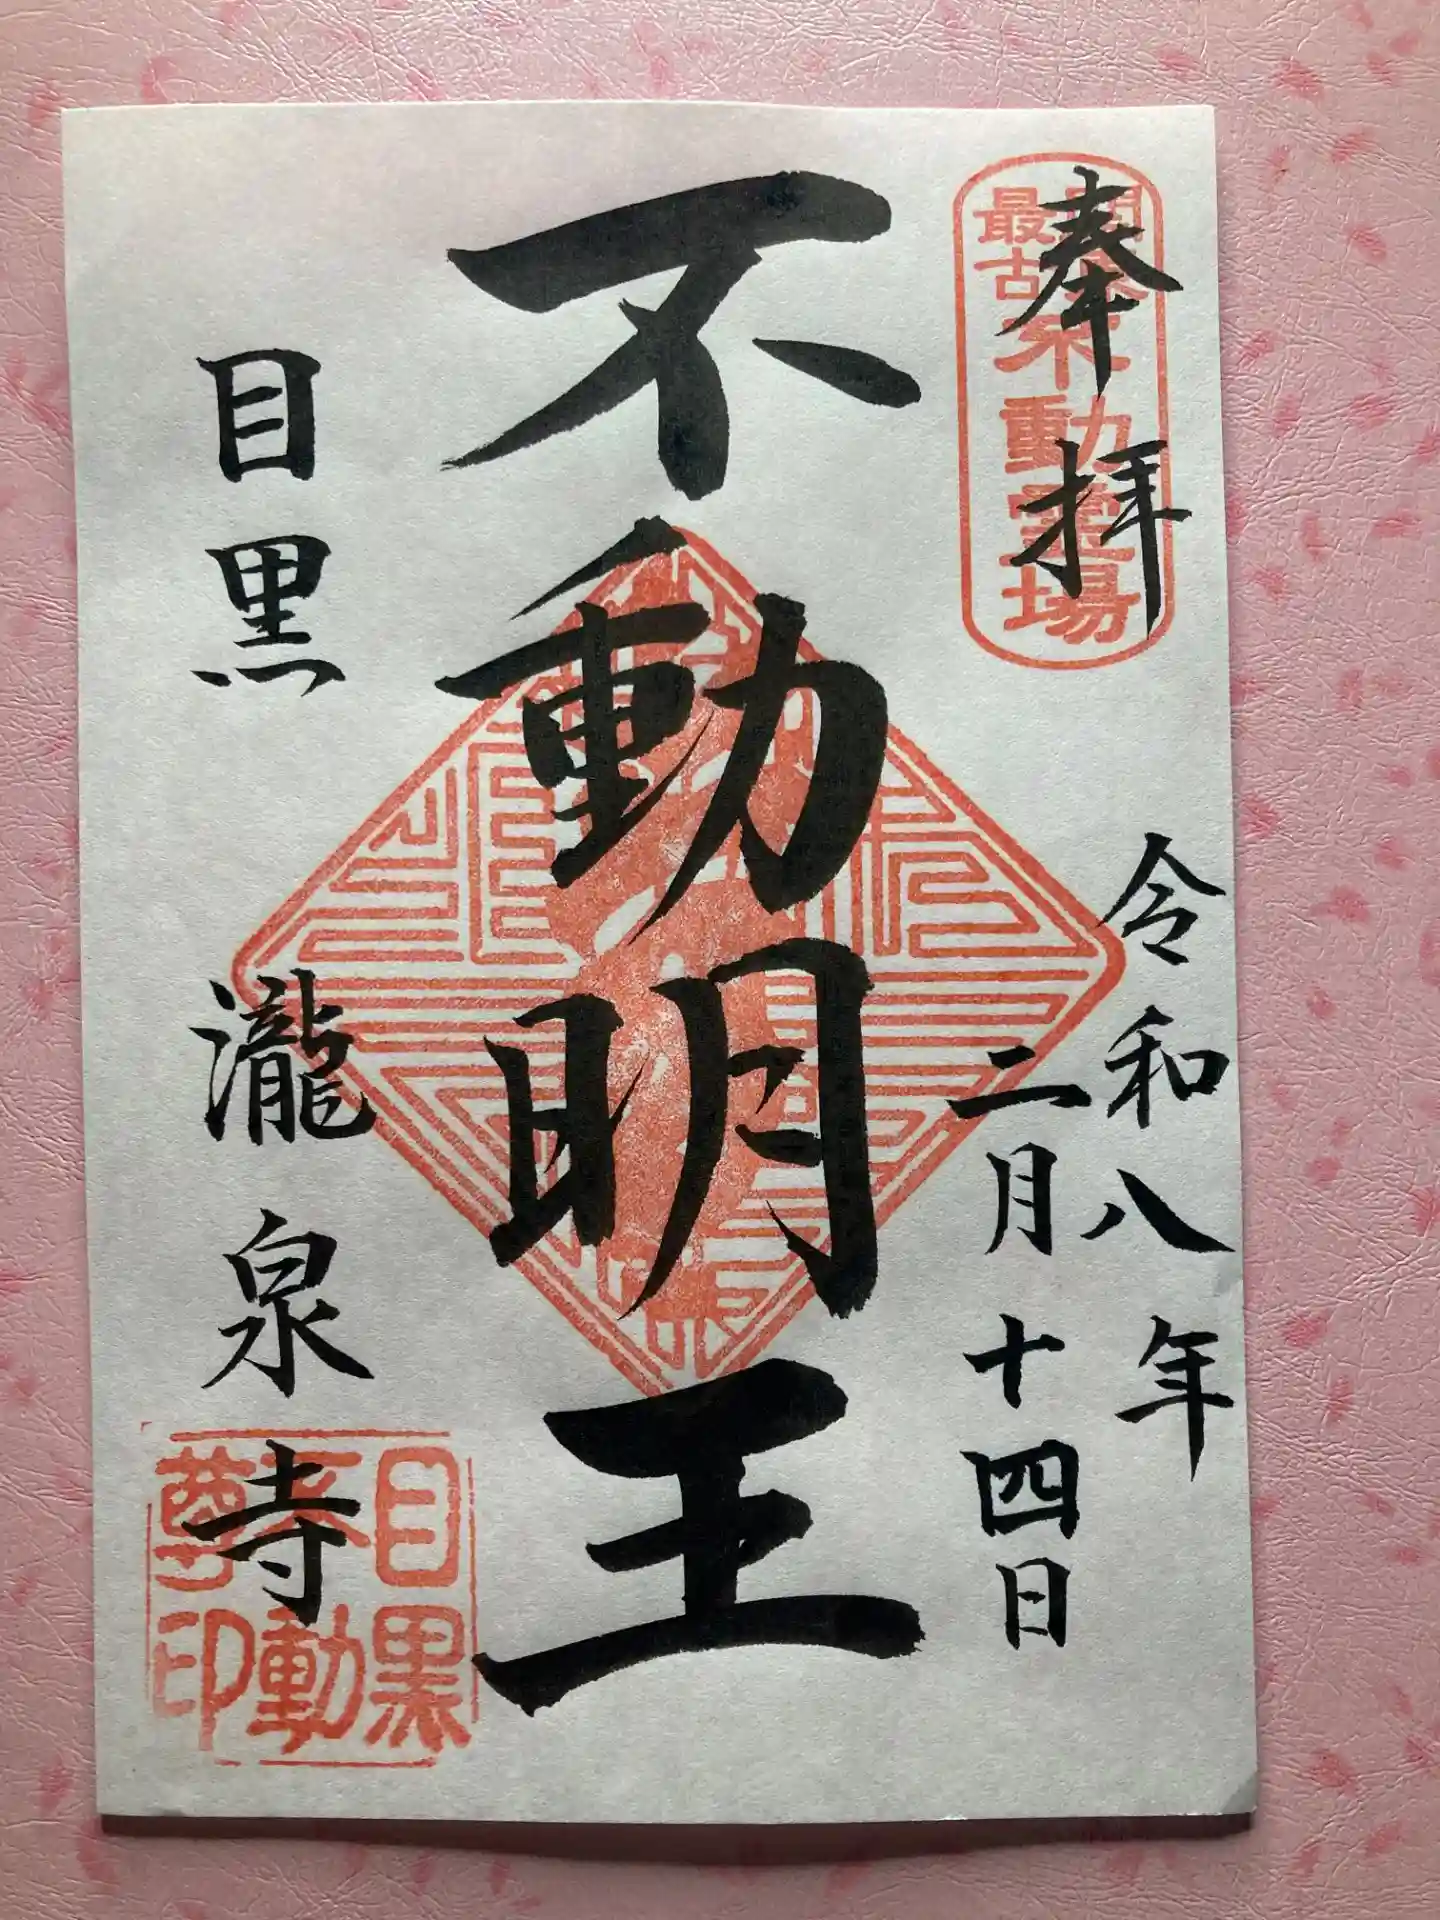 奉拝
関東
最古
不動霊場
令和八年
二月十四日
不動明王
目黒 瀧泉寺
目黒
不動
尊印